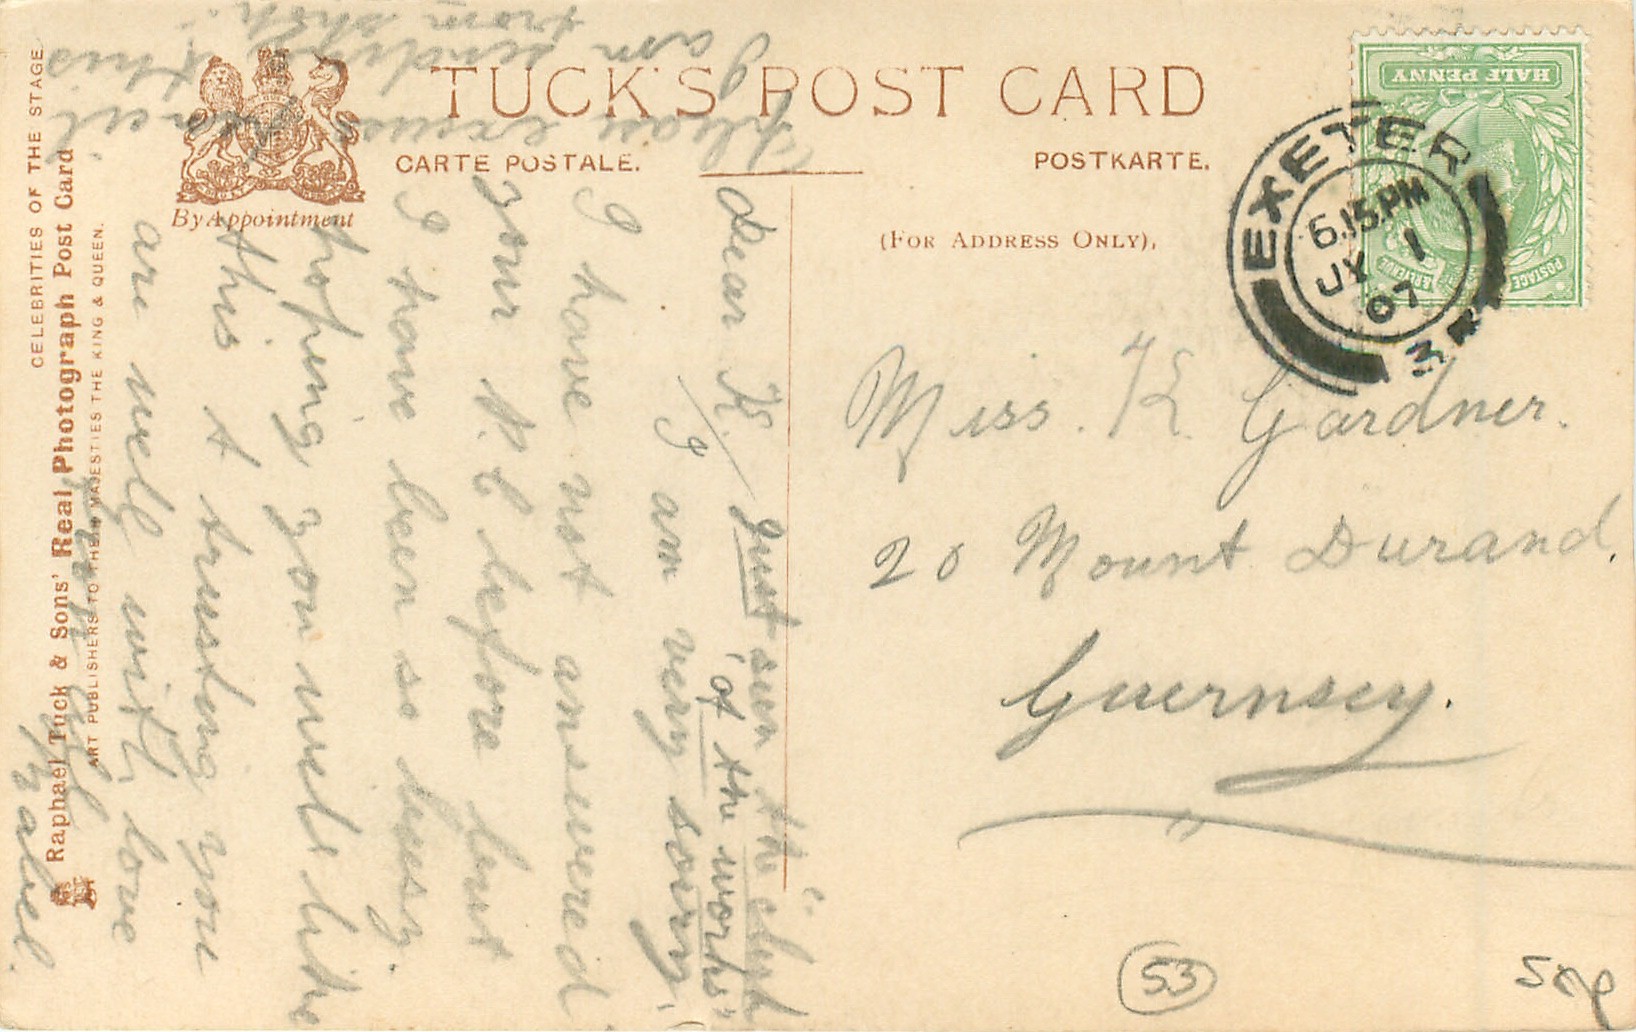 TUCK'S POST CARD
CARTE POSTALE.
POSTKARTE.
(FOR ADDRESS ONLY).
By Appointment
CELEBRITIES OF THE STAGE.
Raphael Tuck & Sons' Real Photograph Post Card
ART PUBLISHERS TO THEIR MAJESTIES THE KING & QUEEN.
HALF PENNY
POSTAGE
REVENUE
EXETER
6.15.PM
JY 1
07
Miss. K. Gardner.
20 Mount Durand.
Guernsey.
Dear K. Just seen the
of the works
I am very sorry
I have not answered
your P.C before but
I have been so busy.
hoping you will like
this & trusting you
are well with love
from all
Mabel.
Please excuse pencil
I am sending this
from shop.
53
50p